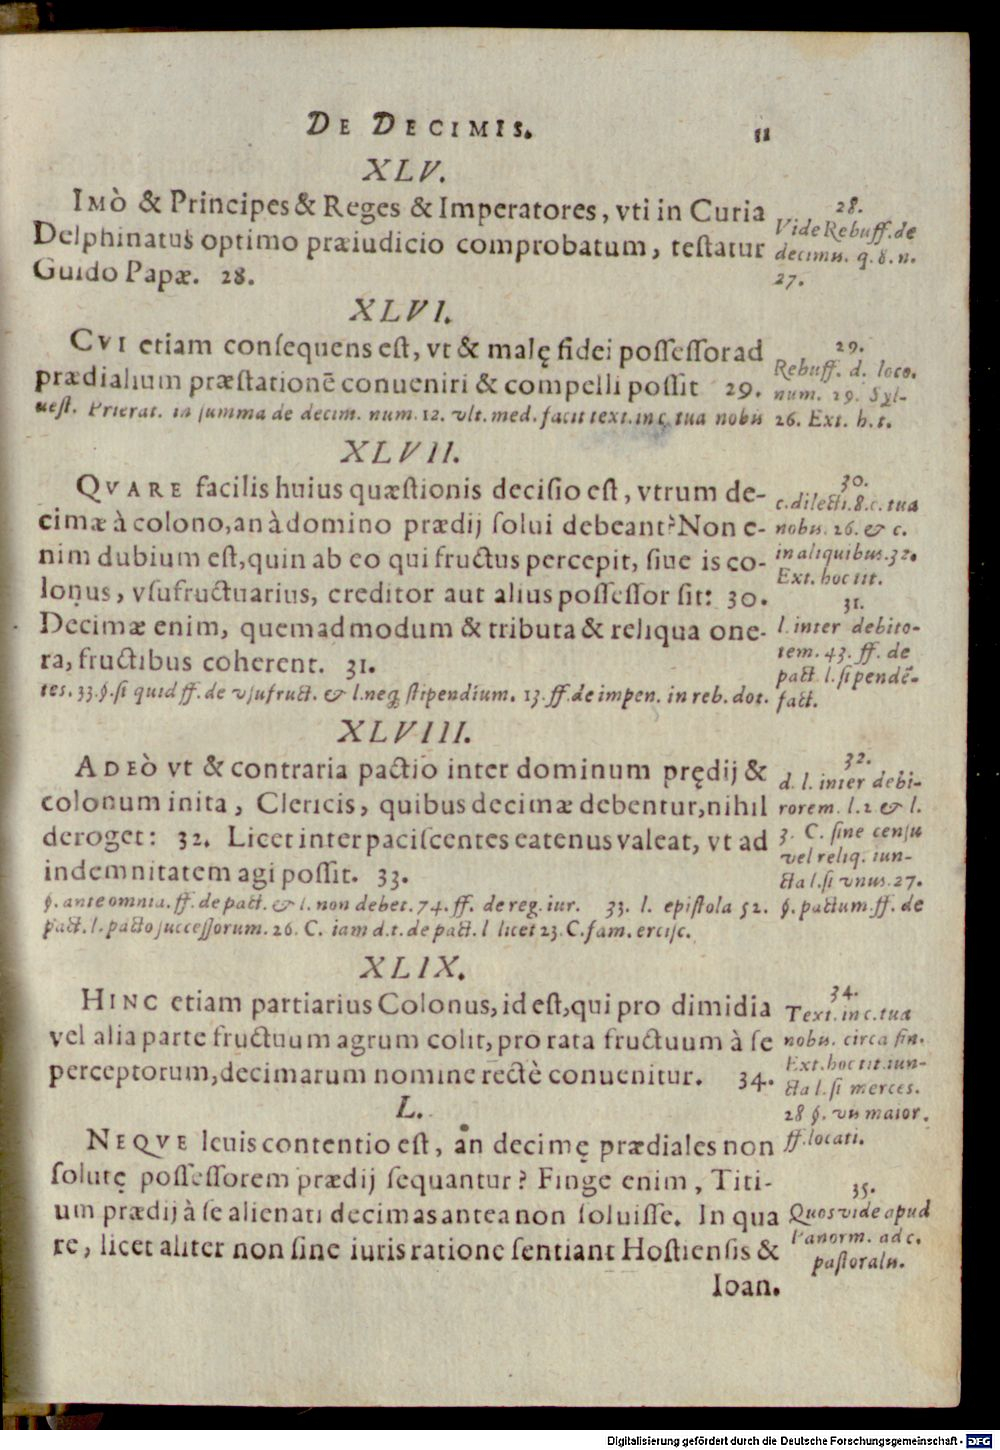 DE DECIMIS. 11
XLV.
IMò & Principes & Reges & Imperatores, vti in Curia
Delphinatus optimo præiudicio comprobatum, testatur
Guido Papæ. 28.
28.
Vide Rebuff. de
decimis. q. 8. n.
27.
XLVI.
CVI etiam consequens est, vt & malę fidei possessor ad
prædialium præstationē conueniri & compelli possit 29.
29.
Rebuff. d. loco.
num. 29. Syl-
uest. Prierat. in summa de decim. num. 12. vlt. med. facit text. in c. tua nobis 26. Ext. h. t.
XLVII.
QVARE facilis huius quæstionis decisio est, vtrum de-
cimæ à colono, an à domino prædij solui debeant? Non e-
nim dubium est, quin ab eo qui fructus percepit, siue is co-
lonus, vsufructuarius, creditor aut alius possessor sit: 30.
Decimæ enim, quemadmodum & tributa & reliqua one-
ra, fructibus coherent. 31.
30.
c. dilecti. 8. c. tua
nobis. 26. & c.
in aliquibus. 32.
Ext. hoc tit.
31.
l. inter debito-
rem. 43. ff. de
pact. l. si pendē-
tes. 33. §. si quid ff. de vsufruct. & l. neq; stipendium. 13. ff. de impen. in reb. dot. fact.
XLVIII.
ADEò vt & contraria pactio inter dominum prędij &
colonum inita, Clericis, quibus decimæ debentur, nihil
deroget: 32. Licet inter paciscentes eatenus valeat, vt ad
indemnitatem agi possit. 33.
32.
d. l. inter debi-
rorem. l. 2 & l.
3. C. sine censu
vel reliq. iun-
cta l. si vnus. 27.
§. ante omnia. ff. de pact. & l. non debet. 74. ff. de reg. iur. 33. l. epistola 52. §. pactum. ff. de
pact. l. pacto successorum. 26. C. iam d. t. de pact. l licet 23. C. fam. ercisc.
XLIX.
HINC etiam partiarius Colonus, id est, qui pro dimidia
vel alia parte fructuum agrum colit, pro rata fructuum à se
perceptorum, decimarum nomine rectè conuenitur. 34.
34.
Text. in c. tua
nobis. circa fin.
Ext. hoc tit. iun-
cta l. si merces.
28 §. vis maior.
ff. locati.
L.
NEQVE leuis contentio est, an decimę prædiales non
solutę possessorem prædij sequantur? Finge enim, Titi-
um prædij à se alienati decimas antea non soluisse. In qua
re, licet aliter non sine iuris ratione sentiant Hostiensis &
Ioan.
35.
Quos vide apud
Panorm. ad c.
pastoralis.
Digitalisierung gefördert durch die Deutsche Forschungsgemeinschaft - DFG